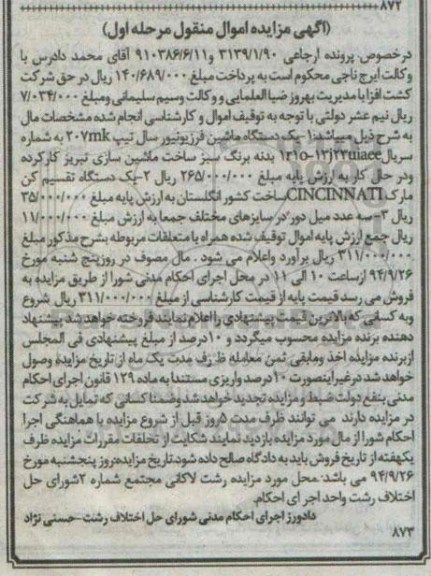 ۸۷۲
(آگهی مزایده اموال منقول مرحله اول)
درخصوص پرونده ارجاعی ۳۱۳۹/۱/۹۰ و۹۱۰۳۸۶/۶/۱۱ آقای محمد دادرس با
وکالت ایرج ناجی محکوم است به پرداخت مبلغ ۱۴۰/۶۸۹/۰۰۰ ریال در حق شرکت
کشت افزا با مدیریت بهروز ضیا العلمایی و وکالت وسیم سلیمانی ومبلغ ۷/۰۳۴/۰۰۰
ریال نیم عشر دولتی با توجه به توقیف اموال و کارشناسی انجام شده مشخصات مال
به شرح ذیل میباشد:۱-یک دستگاه ماشین فرزیونیور سال تیپ ۲۰۷mk به شماره
سریال بدنه برنگ سبز ساخت ماشین سازی تبریز کارکرده
ودر حال کار به ارزش پایه مبلغ ۲۶۵/۰۰۰/۰۰۰ ریال ۲-یک دستگاه تقسیم کن
مارک CINCINNATI ساخت کشور انگلستان به ارزش پایه مبلغ ۳۵/۰۰۰/۰۰۰
ریال ۳-سه عدد میل دور در سایزهای مختلف جمعا به ارزش مبلغ ۱۱/۰۰۰/۰۰۰
ریال جمع ارزش پایه اموال توقیف شده همراه با متعلقات مربوطه بشرح مذکور مبلغ
۳۱۱/۰۰۰/۰۰۰ ریال برآورد واعلام می شود . مال مصوف در روزپنج شنبه مورخ
۹۴/۹/۲۶ ازساعت ۱۰ الی ۱۱ در محل اجرای احکام مدنی شورا از طریق مزایده به
فروش می رسد قیمت پایه از قیمت کارشناسی از مبلغ ۳۱۱/۰۰۰/۰۰۰ ریال شروع
وبه کسانی که بالاترین قیمت پیشنهادی را اعلام نمایند فروخته خواهد شد پیشنهاد
دهنده برنده مزایده محسوب میگردد و ۱۰درصد از مبلغ پیشنهادی فی المجلس
ازبرنده مزایده اخذ ومابقی ثمن معامله ظرف مدت یک ماه از تاریخ مزایده وصول
خواهد شد درغیراینصورت ۱۰درصد واریزی مستندا به ماده ۱۲۹ قانون اجرای احکام
مدنی بنفع دولت ضبط و مزایده تجدید خواهد شد وضمنا کسانی که تمایل به شرکت
در مزایده دارند می توانند ظرف مدت ۵روز قبل از شروع مزایده با هماهنگی اجرا
احکام شورا از مال مورد مزایده بازدید نمایند شکایت از تخلفات مقررات مزایده ظرف
یکهفته از تاریخ فروش باید به دادگاه صالح داده شود.تاریخ مزایده:روز پنجشنبه مورخ
۹۴/۹/۲۶ می باشد-محل مورد مزایده رشت لاکانی مجتمع شماره ۲شورای حل
اختلاف رشت واحد اجر ای احکام.
دادورز اجرای احکام مدنی شورای حل اختلاف رشت-حسنی نژاد
۸۷۳